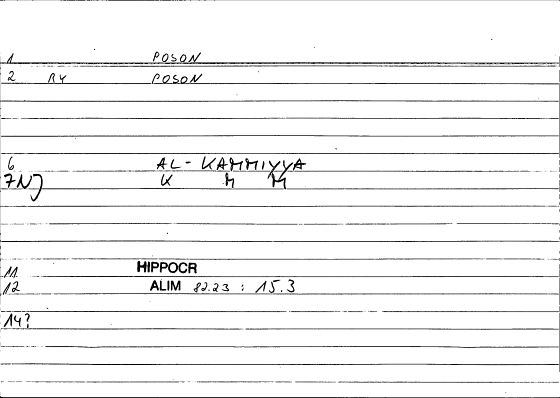 1 POSON
2 RY POSON
6 AL-KAMMIYYA
7NJ K M M
11 HIPPOCR
12 ALIM 82.23 : 15.3
14?